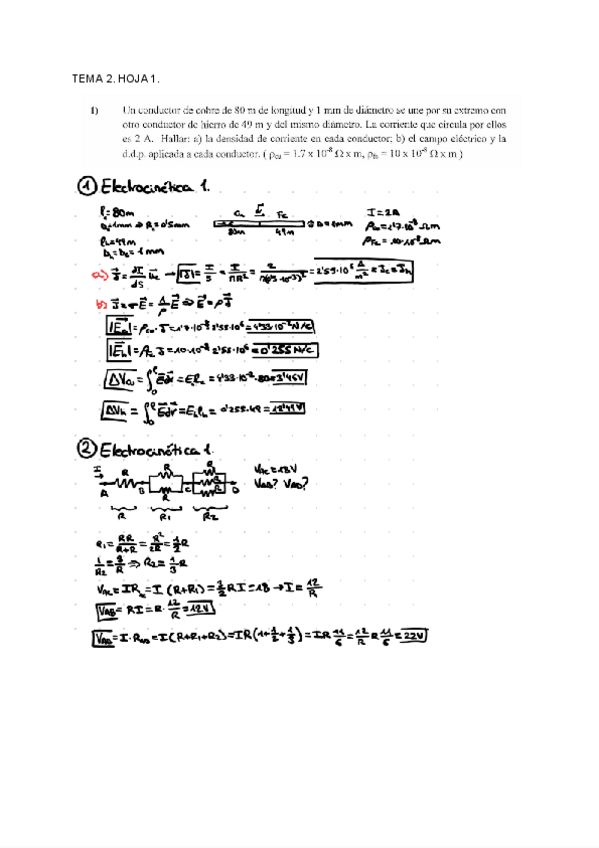 TEMA 2. HOJA 1.
1) Un conductor de cobre de 80 m de longitud y 1 mm de diámetro se une por su extremo con
otro conductor de hierro de 49 m y del mismo diámetro. La corriente que circula por ellos
es 2 A. Hallar: a) la densidad de corriente en cada conductor; b) el campo eléctrico y la
d.d.p. aplicada a cada conductor. ( ρcu = 1.7 x 10⁻⁸ Ω x m, ρfe = 10 x 10⁻⁸ Ω x m )
① Electrocinética 1.
l=80m
Cu E Fe
80m 49m
I=2A
ρcu=1'7·10⁻⁸ Ωm
⇒ R=0'5mm
D=1mm
ρFe=10·10⁻⁸ Ωm
=49m
= 1mm
a) J = dI/dS → |J| = I/S = I/πR² = = 2'55·10⁶ A/m²
b) J=σE = 1/ρ E ⇒ E=ρJ
= ρcu·J=1'7·10⁻⁸·2'55·10⁶=4'33·10⁻²N/C
=10·10⁻⁸·2'55·10⁶=0'255N/C
ΔVcu=∫Edr= =4'33·10⁻²·80=3'46V
=∫Edr= =0'255·49=12'49V
② Electrocinética 1.
I R R R
A B C D
R R
R R1 R2
VAC=18V
VAB? VAD?
R1=RR/R+R=R²/2R=1/2R
1/R2=3/R ⇒ R2=1/3R
VAC=IR =I(R+R1)= RI=18→I=12/R
VAB=RI=R·12/R=12V
VAD=I·RAD=I(R+R1+R2)=IR(1+1/2+1/3)=IR 11/6=12/R R 11/6=22V